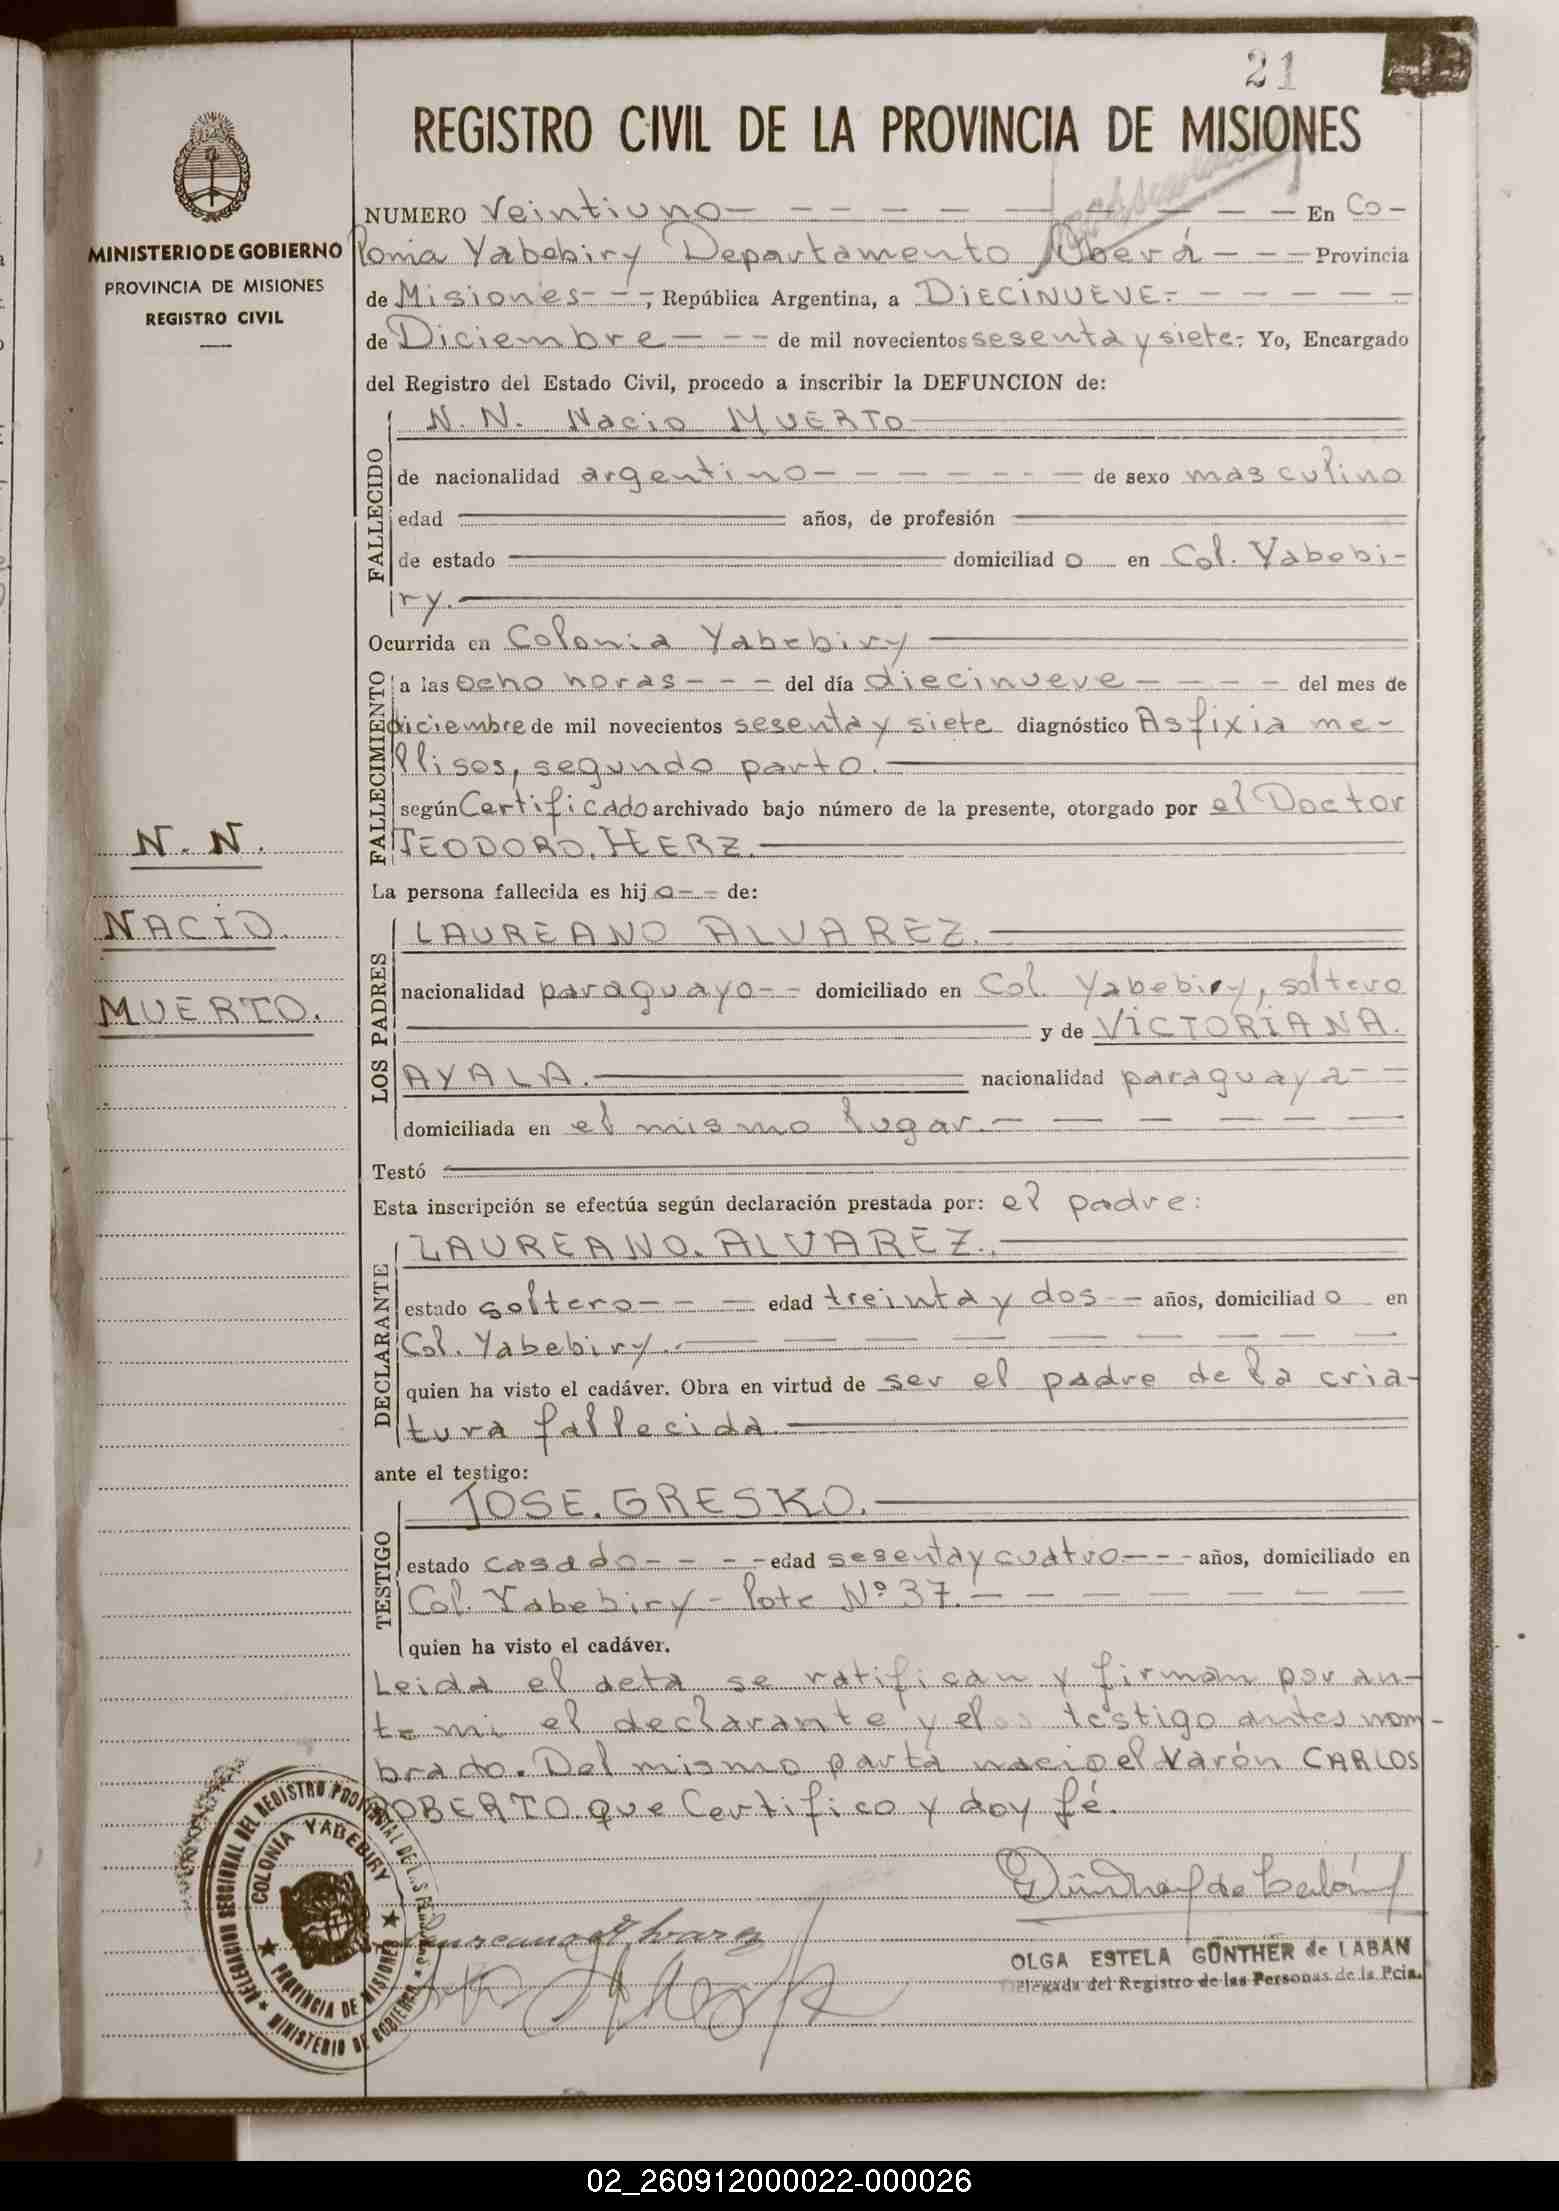 21
REGISTRO CIVIL DE LA PROVINCIA DE MISIONES
MINISTERIO DE GOBIERNO
PROVINCIA DE MISIONES
REGISTRO CIVIL
N. N.
NACIO
MUERTO.
NUMERO Veintiuno - - - - - - - - - En Co-
lonia Yabebiry Departamento Oberá - - - Provincia
de Misiones - - -, República Argentina, a DIECINUEVE.- - - - - -
de Diciembre - - - de mil novecientos sesenta y siete.- Yo, Encargado
del Registro del Estado Civil, procedo a inscribir la DEFUNCION de:
FALLECIDO
N. N. Nacio MUERTO
de nacionalidad argentino - - - - - - - de sexo masculino
edad años, de profesión
de estado domiciliad o en Col. Yabebi-
ry.
Ocurrida en Colonia Yabebiry
FALLECIMIENTO
a las ocho horas - - - del día diecinueve - - - - del mes de
diciembre de mil novecientos sesenta y siete diagnóstico Asfixia me-
llisos, segundo parto.
según Certificado archivado bajo número de la presente, otorgado por el Doctor
TEODORO. HERZ.
La persona fallecida es hij o - - de:
LOS PADRES
LAUREANO ALVAREZ.
nacionalidad paraguayo - - domiciliado en Col. Yabebiry, soltero
y de VICTORIANA.
AYALA. nacionalidad paraguaya - -
domiciliada en el mismo lugar. - - - - - -
Testó
Esta inscripción se efectúa según declaración prestada por: el padre:
DECLARANTE
LAUREANO. ALVAREZ.
estado soltero - - - edad treinta y dos - - años, domiciliad o en
Col. Yabebiry. - - - - - - - - -
quien ha visto el cadáver. Obra en virtud de ser el padre de la cria-
tura fallecida.
ante el testigo:
TESTIGO
JOSE. GRESKO.
estado casado - - - - edad sesenta y cuatro - - - años, domiciliado en
Col. Yabebiry - lote Nº 37. - - - - - - - -
quien ha visto el cadáver.
Leida el acta se ratifican y firman por an-
te mi el declarante y el testigo antes nom-
brado. Del mismo parto nacio el varón CARLOS
ROBERTO que Certifico y doy fé.
DELEGACION SECCIONAL DEL REGISTRO PROVINCIAL DE LAS PERSONAS
COLONIA YABEBIRY
PROVINCIA DE MISIONES
MINISTERIO DE GOBIERNO
Laureano Alvarez
OLGA ESTELA GÜNTHER de LABAN
Delegada del Registro de las Personas de la Pcia.
02_260912000022-000026